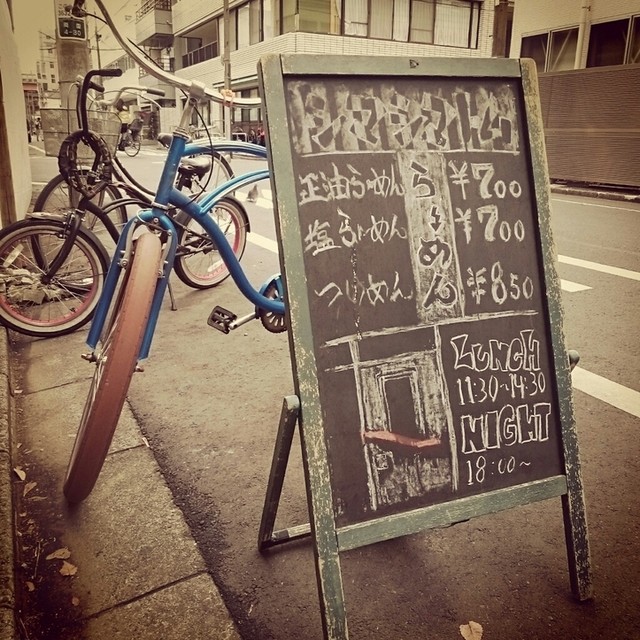 正油らーめん ¥700
塩らーめん ¥700
つけめん ¥850
らーめん
LUNCH
11:30~14:30
NIGHT
18:00~